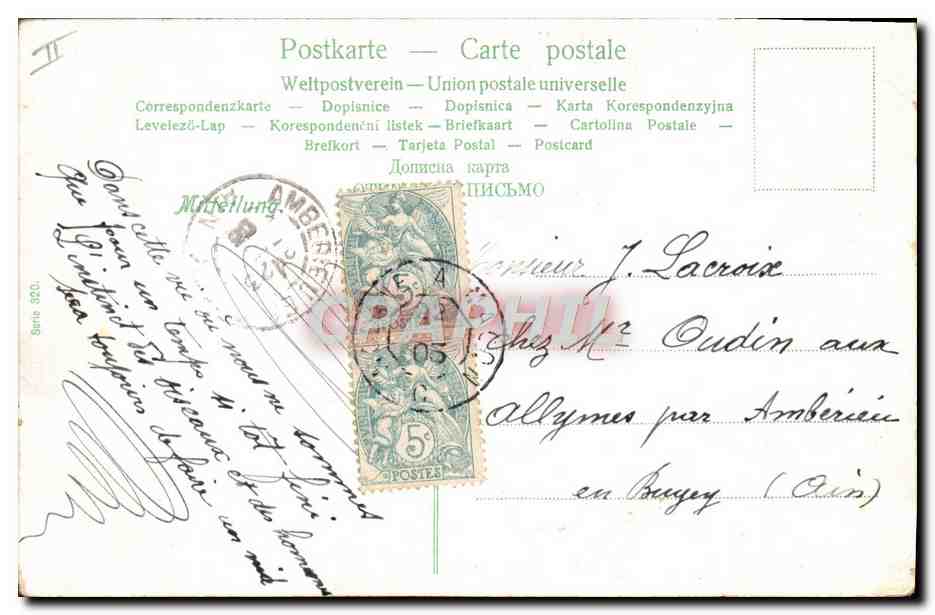 II
Postkarte — Carte postale
Weltpostverein — Union postale universelle
Correspondenzkarte — Dopisnice — Dopisnica — Karta Korespondenzyjna
Levelező-Lap — Korespondenční listek — Briefkaart — Cartolina Postale —
Brefkort — Tarjeta Postal — Postcard
Дописна карта
ПИСЬМО
Mitteilung
AMBERIEU
Dans cette vie où nous ne sommes
que pour un temps si tôt fini
L'instinct des oiseaux et des hommes
sera toujours de faire un nid
5c
POSTES
05
CPAPHIL
Monsieur J. Lacroix
chez Mr Oudin aux
Allymes par Ambérieu
en Bugey (Ain)
Serie 320.